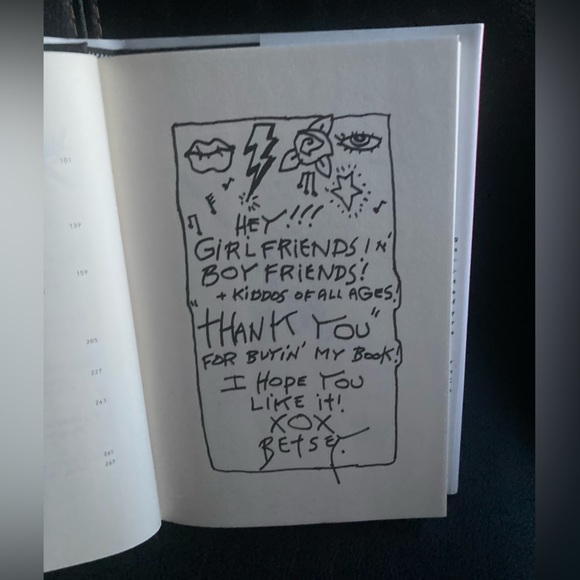 101
139
159
205
227
243
261
267
HEY!!!
GIRLFRIENDS IN'
BOYFRIENDS!
+ KIDDOS OF ALL AGES!
"THANK YOU"
FOR BUYIN' MY BOOK!
I HOPE YOU
LIKE IT!
XOX
BETSEY.